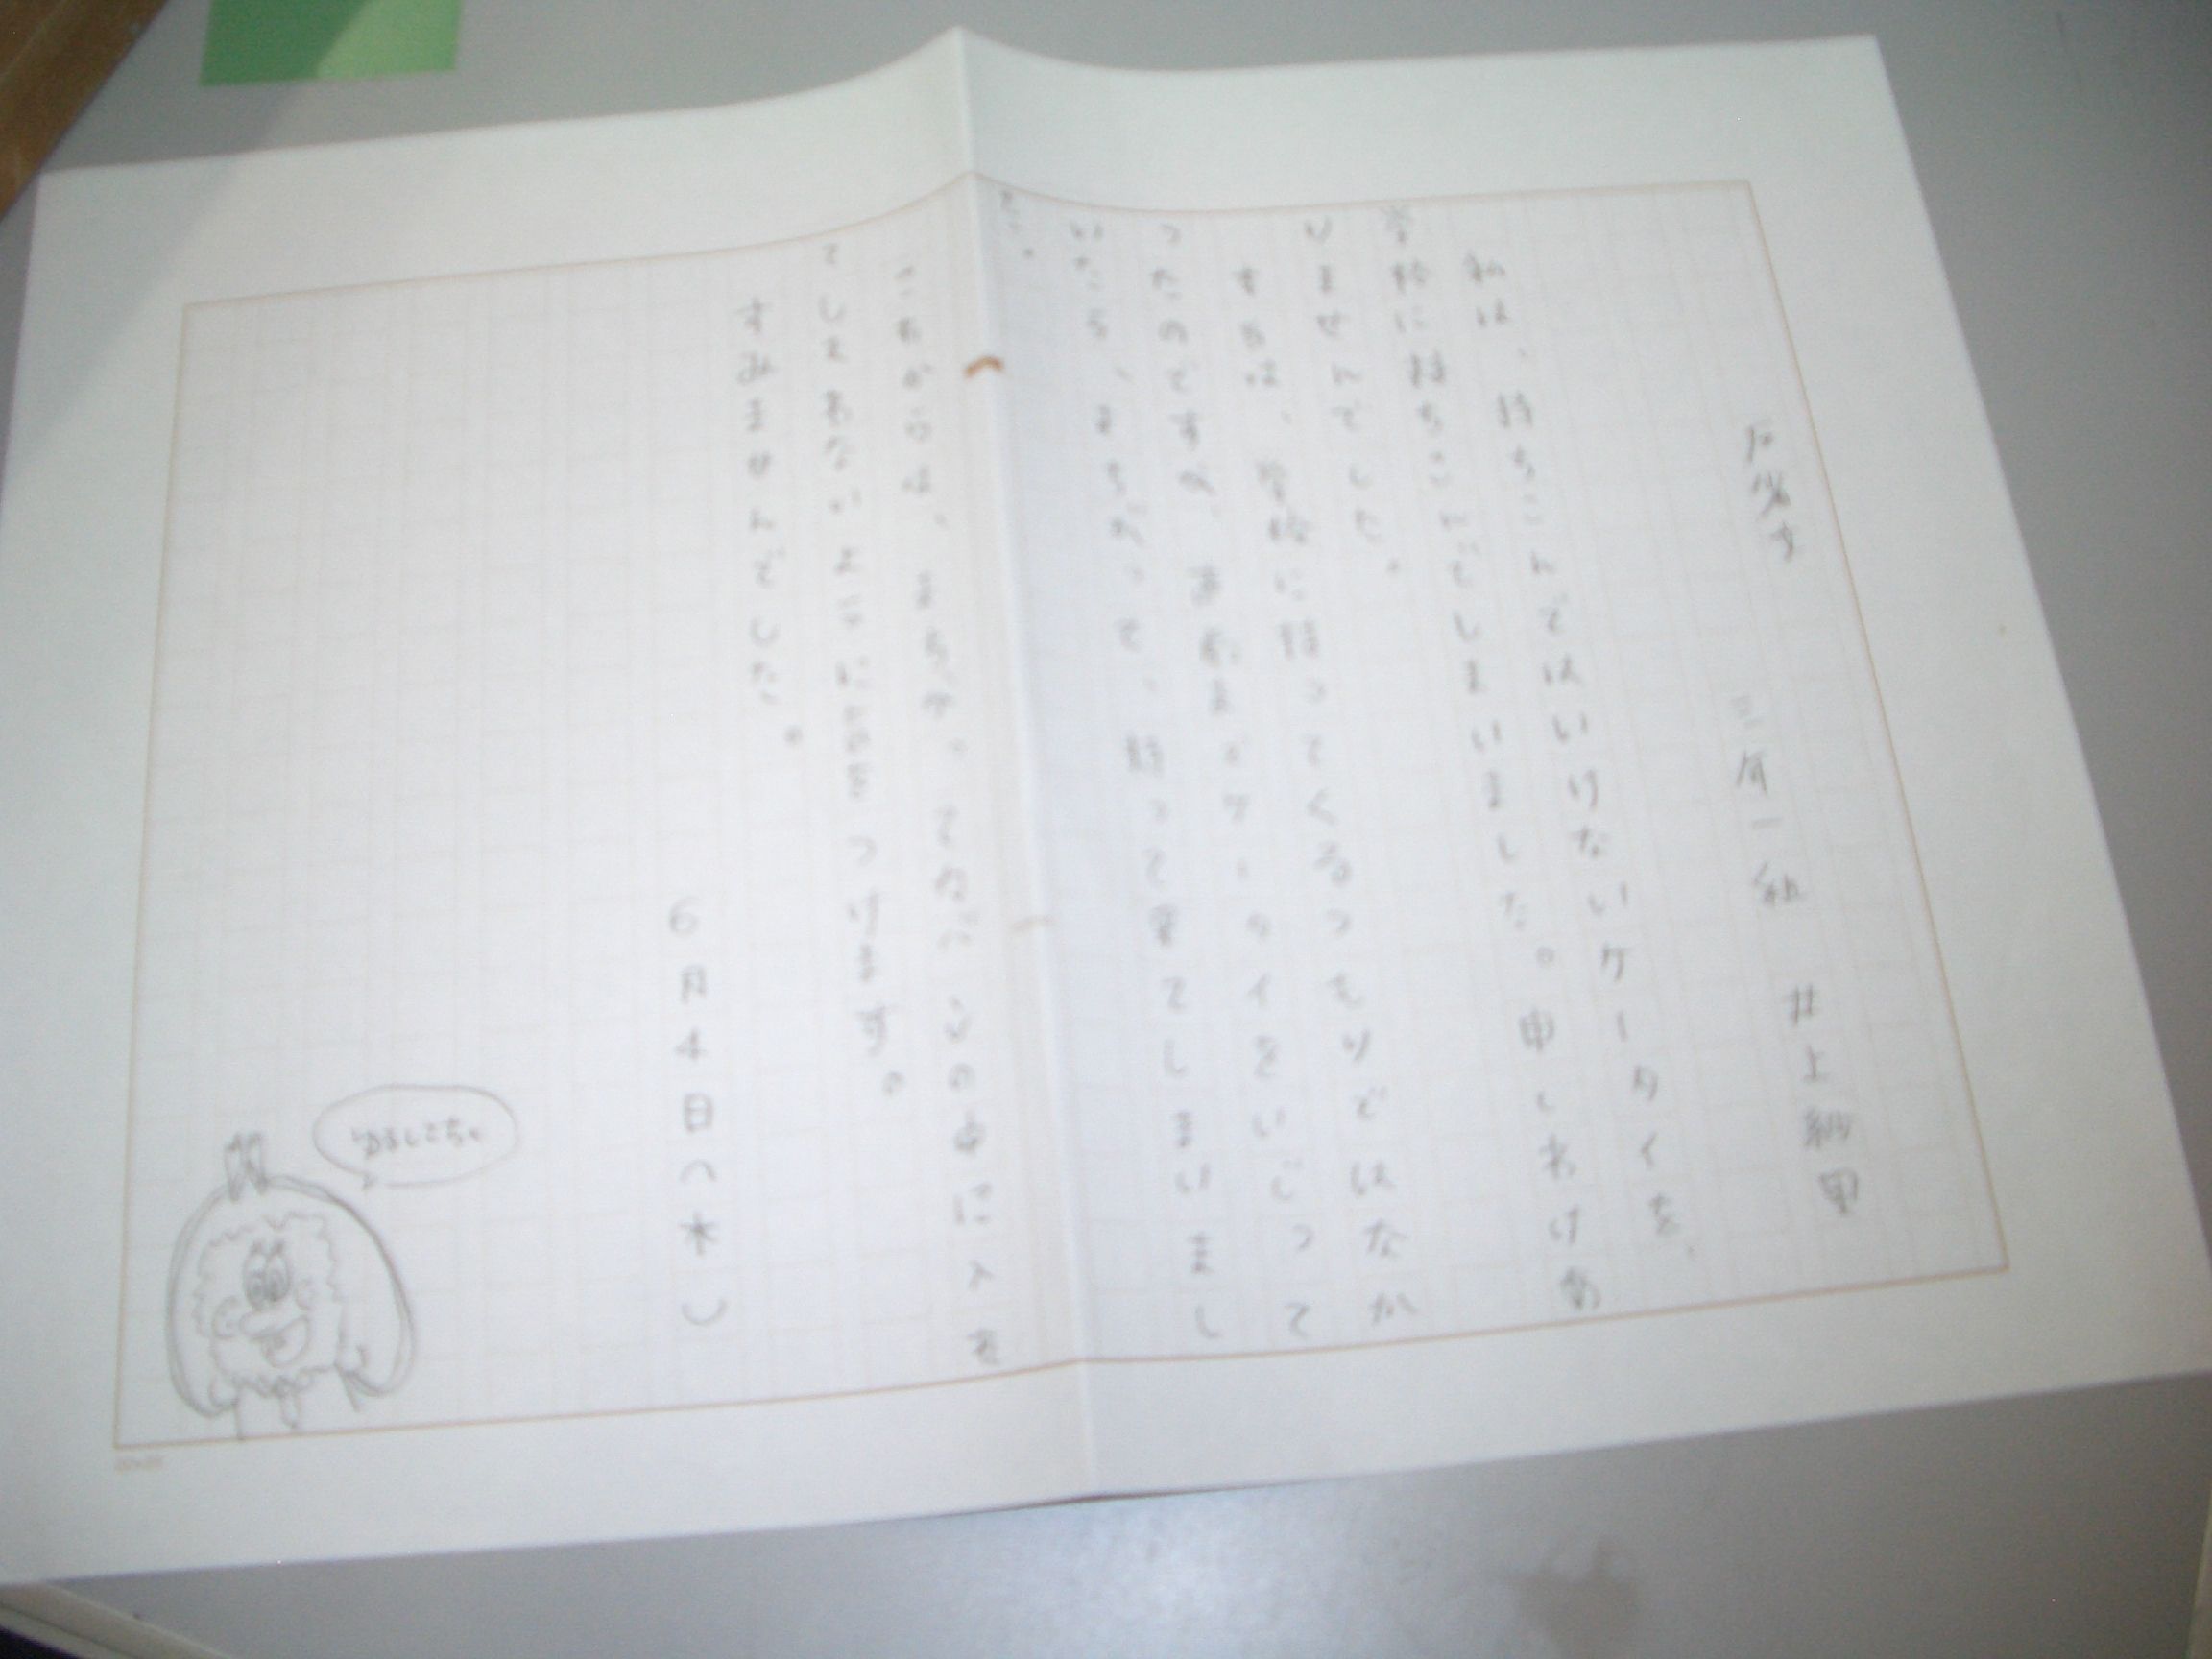 反省文
三年一組 井上紗里
私は、持ちこんではいけないケータイを、
学校に持ちこんでしまいました。申しわけあ
りませんでした。
は、学校に持ってくるつもりではなか
ったのですが、までケータイをいじって
いたら、まちがって、持って来てしまいまし
た。
これからは、まちがってかばんの中に入れ
てしまわないように気をつけます。
すみませんでした。
6月4日(木)
ゆるしてちょ